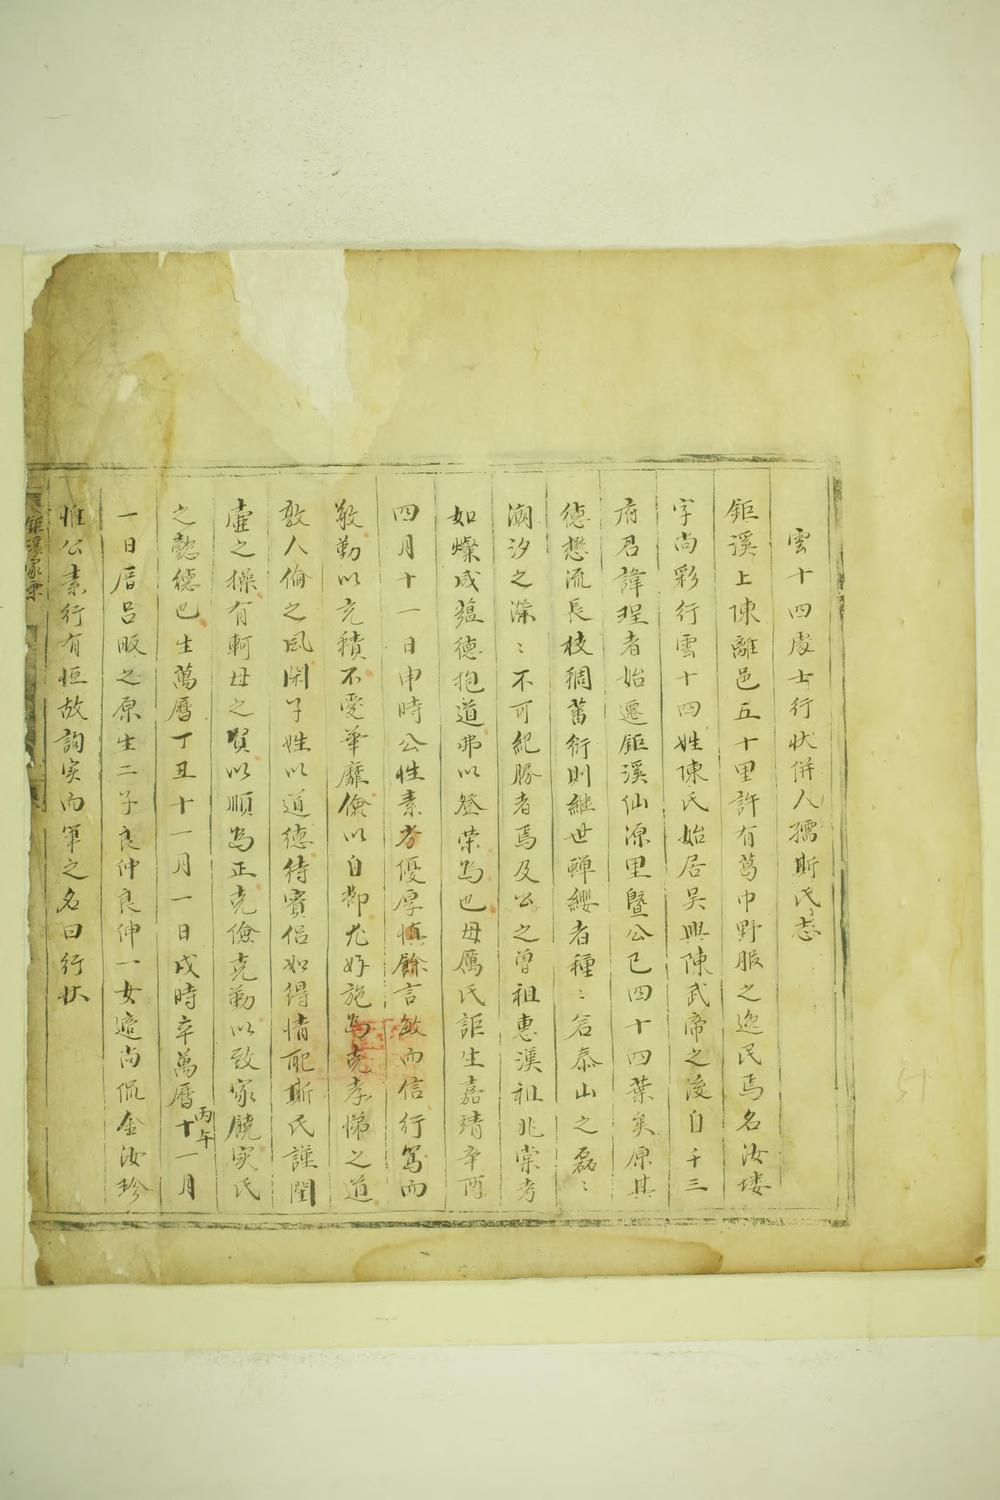 雲十四處士行状併人孺斯氏志
鉅溪上陳離邑五十里許有葛巾野服之逸民焉名汝塿
字尚彩行雲十四姓陳氏始居吳興陳武帝之後自千三
府君諱珵者始遷鉅溪仙源里暨公已四十四葉矣原其
德懋流長枝稠蕃衍則継世蟬纓者種〻若泰山之磊〻
潮汐之溁〻不可紀勝者焉及公之曾祖惠漢祖兆棠考
如燦咸蘊德抱道弗以登荣為也母厲氏詎生嘉靖辛酉
四月十一日申時公性素孝優厚慎餘言敏而信行篤而
敬勤以克積不愛華靡儉以自都尤好施為克孝悌之道
敦人倫之風閑子姓以道德待賓侣如得情配斯氏謹閨
壼之操有軻母之贤以順為正克儉克勤以致家饒寔氏
之懿德也生萬曆丁丑十一月一日戌時卒萬曆丙午十一月
一日厝吕畈之原生二子良仲良伸一女適尚侃金汝珍
惟公素行有恒故詢实而筆之名曰行状
鉅溪家乘